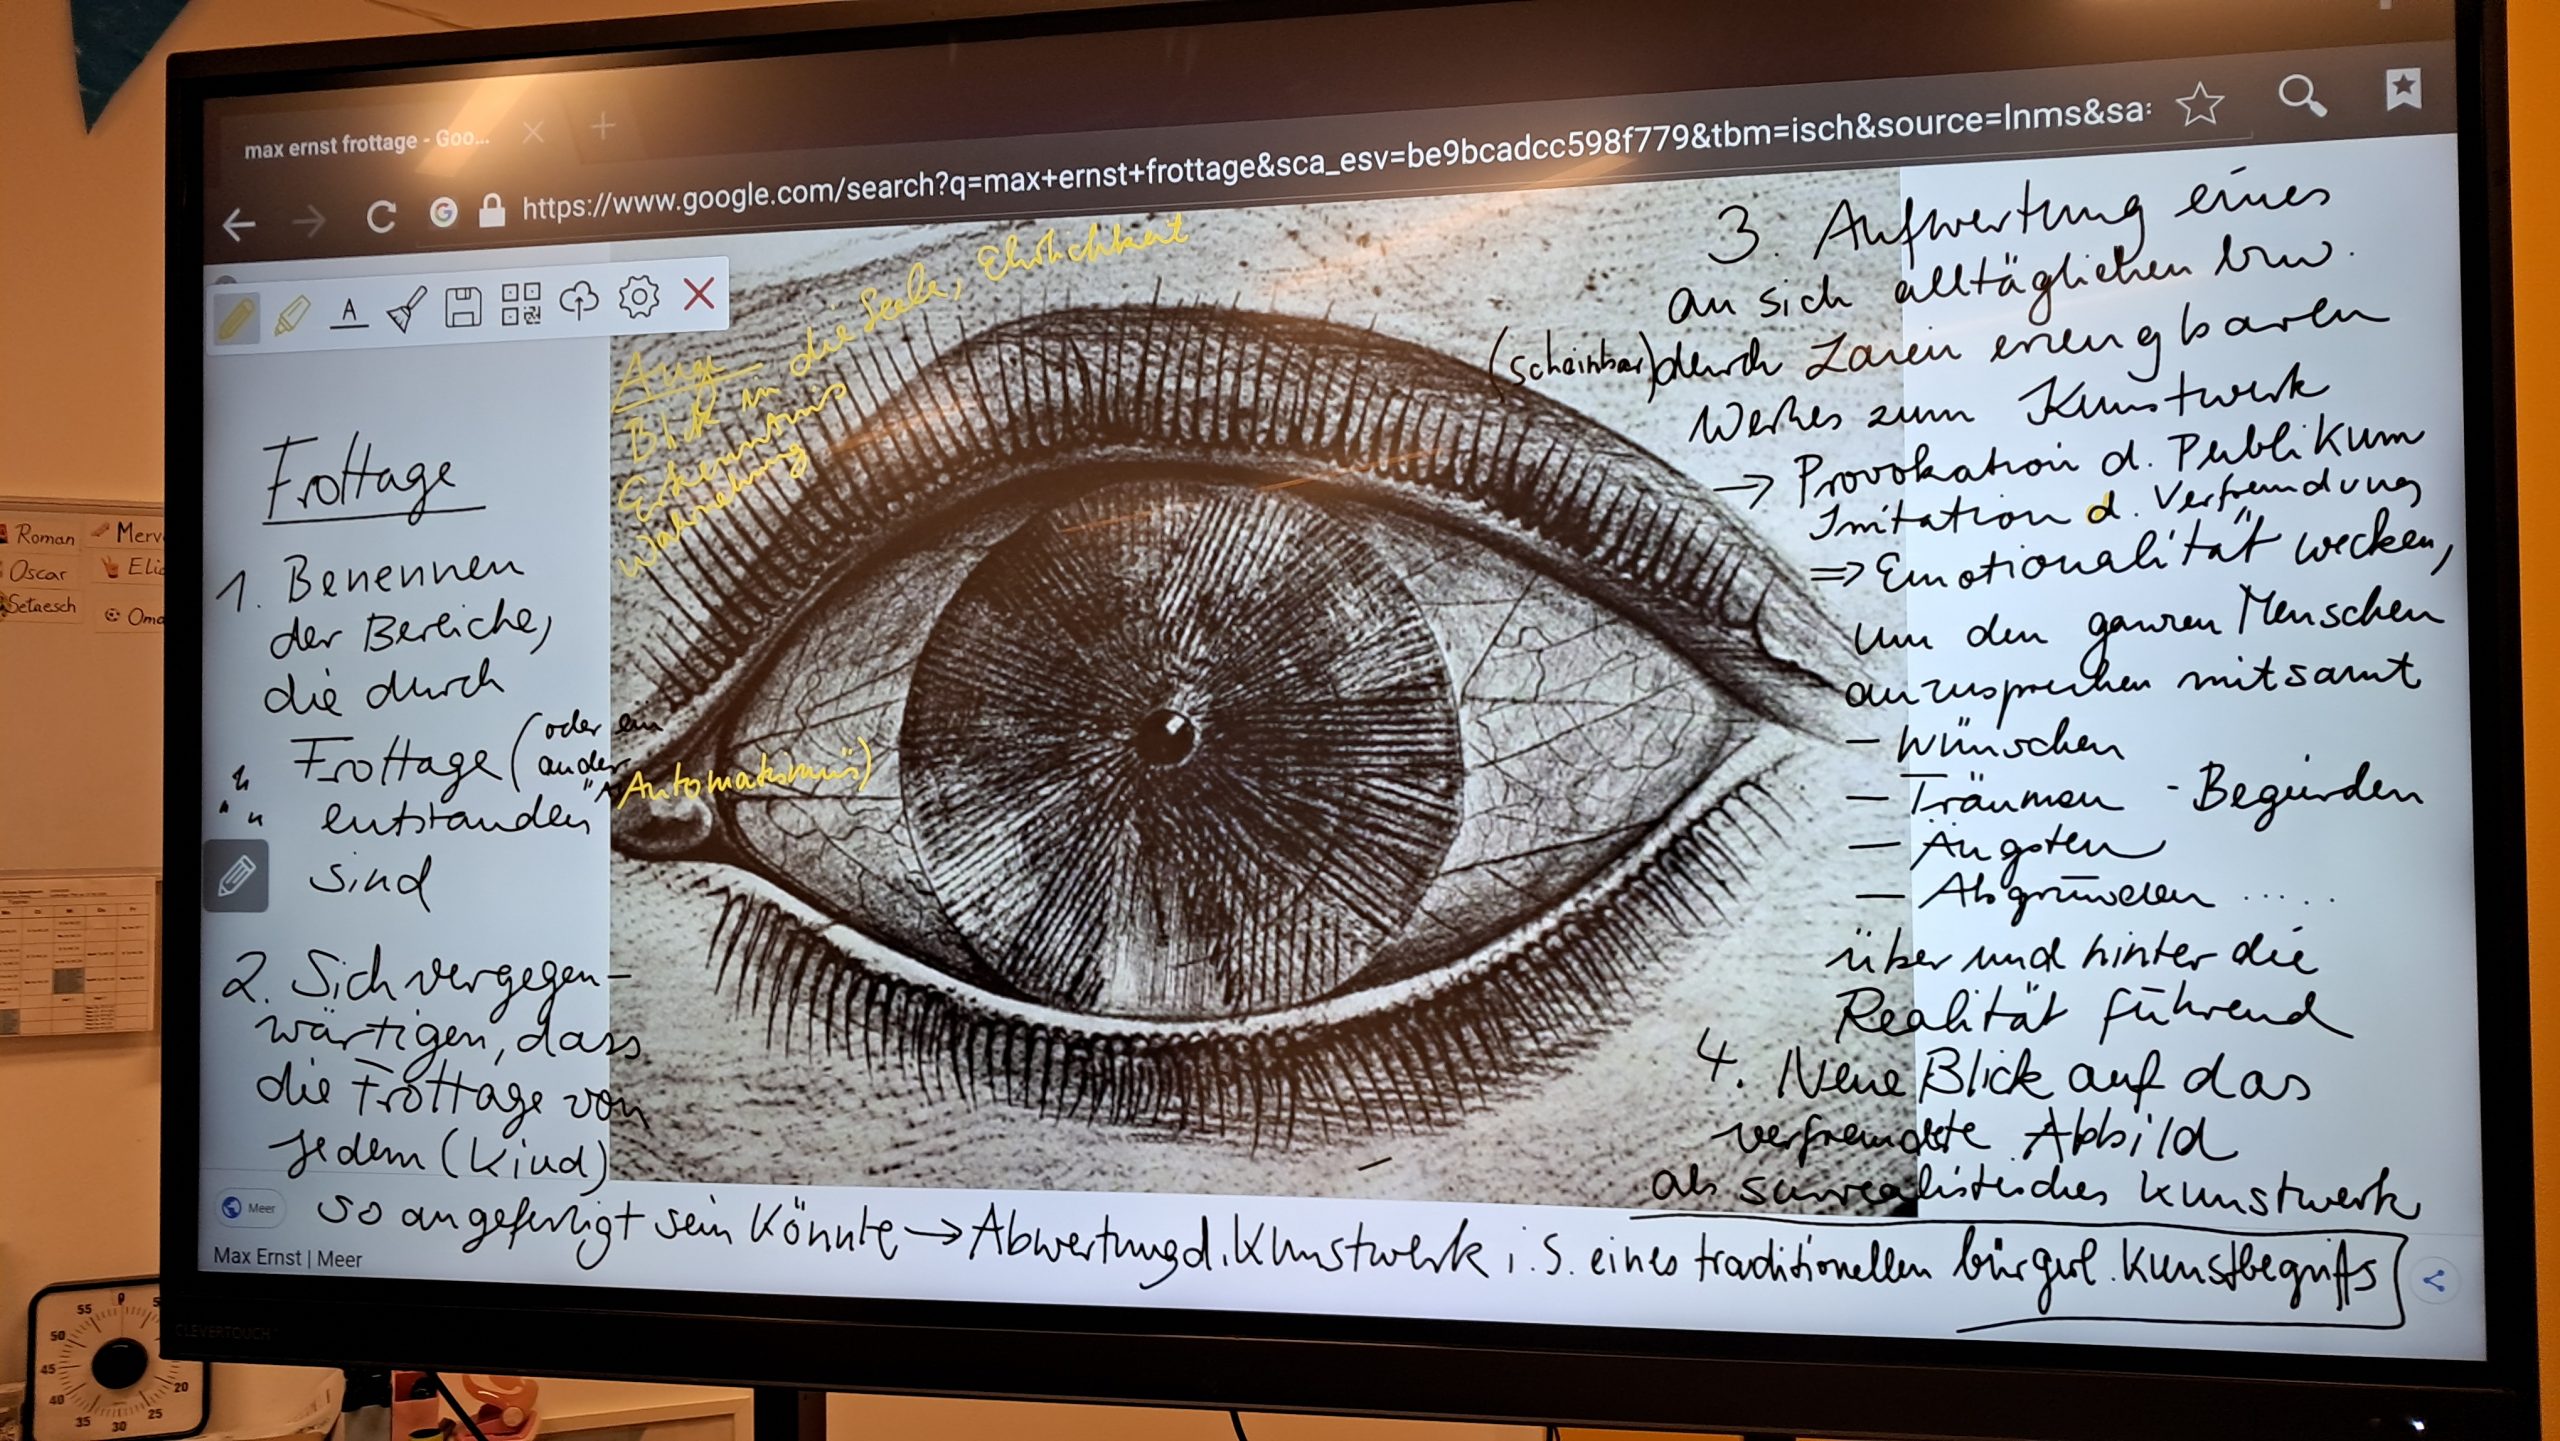 max ernst frottage - Goo...
https://www.google.com/search?q=max+ernst+frottage&sca_esv=be9bcadcc598f779&tbm=isch&source=lnms&sa:
A
Auge
Blick in die Seele, Ehrlichkeit
Erkenntnis
Wahrnehmung
Frottage
1. Benennen
der Bereiche,
die durch
Frottage (oder ein
ander
"Automatismus")
entstanden
sind
2. Sich vergegen-
wärtigen, dass
die Frottage von
jedem (Kind)
so angefertigt sein könnte → Abwertung d. Kunstwerk i. S. eines traditionellen bürgerl. Kunstbegriffs
3. Aufwertung eines
an sich alltäglichen bzw.
(scheinbar) durch Laien erzeugbaren
Werkes zum Kunstwerk
→ Provokation d. Publikum
Imitation d. Verfremdung
⇒ Emotionalität wecken,
um den ganzen Menschen
anzusprechen mitsamt
- Wünschen
- Träumen - Begierden
- Ängsten
- Abgründen .....
über und hinter die
Realität führend
4. Neue Blick auf das
verfremdete Abbild
als surrealistisches Kunstwerk
Meer
Max Ernst | Meer
CLEVERTOUCH
Roman
Merv
Oscar
Elic
Setaesch
Oma
55
0
5
50
45
40
35
30
25
20